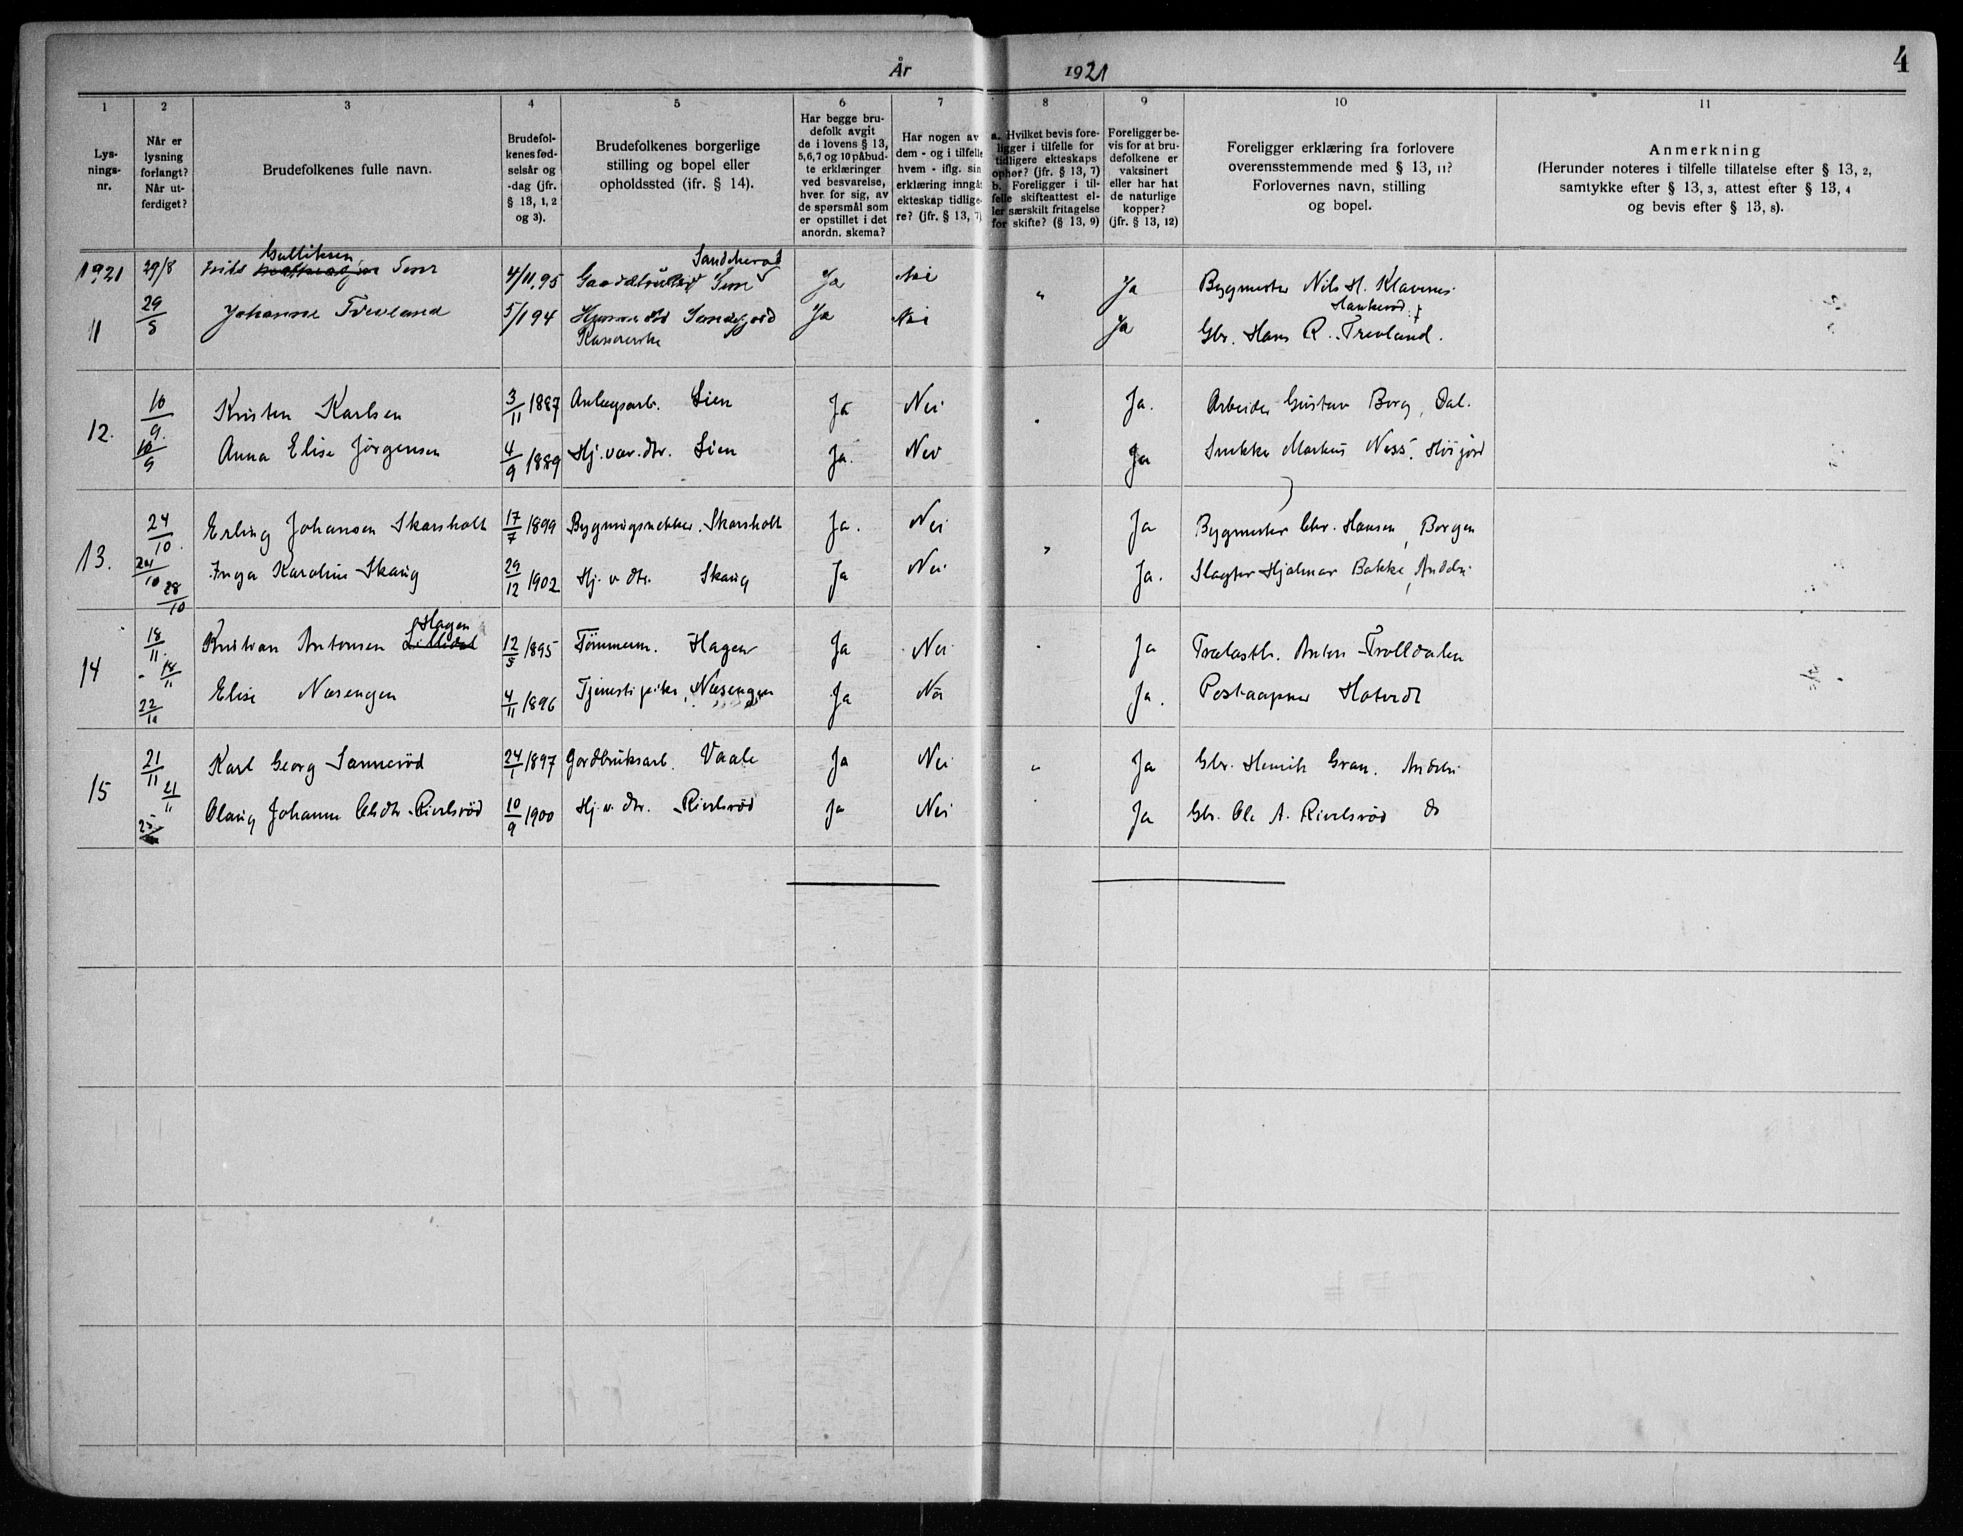 År 1921
4
1 2 3 4 5 6 7 8 9 10 11
Lys-
nings-
nr.
Når er
lysning
forlangt?
Når ut-
ferdiget?
Brudefolkenes fulle navn.
Brudefol-
kenes fød-
selsår og
-dag (jfr.
§ 13, 1, 2
og 3).
Brudefolkenes borgerlige
stilling og bopel eller
opholdssted (ifr. § 14).
Har begge bru-
defolk avgit
de i lovens § 13,
5, 6, 7 og 10 påbud-
te erklæringer
ved besvarelse,
hver for sig, av
de spørsmål som
er opstillet i det
anordn. skema?
Har nogen av
dem - og i tilfelle
hvem - iflg. sin
erklæring inngå
ekteskap tidlige-
re? (jfr. § 13, 7)
a. Hvilket bevis fore-
ligger i tilfelle for
tidligere ekteskaps
ophør? (jfr. § 13, 7)
b. Foreligger i til-
felle skifteattest el-
ler særskilt fritagelse
for skifte? (§ 13, 9)
Foreligger be-
vis for at bru-
defolkene er
vaksinert
eller har hat
de naturlige
kopper?
(jfr. § 13, 12)
Foreligger erklæring fra forlovere
overensstemmende med § 13, 11?
Forlovernes navn, stilling
og bopel.
Anmerkning
(Herunder noteres i tilfelle tillatelse efter § 13, 2,
samtykke efter § 13, 3, attest efter § 13, 4
og bevis efter § 13, 8).
Gulliksen Sandeherad
1921 29/8 Nils 4/11.95 Ja Nei " Ja Bygmester Nils H. Klavenes
Haukerød
11 29/8 Johanne Treveland 5/1 94 Sandefjord Ja Nei Ja Gbr. Hans R. Trevland.
12. 10/9. Kristen Karlsen 3/11 1887 Anlægsarb. Lien Ja Nei " Ja. Arbeider Gustav Borg, Dal.
10/9 Anna Elise Jørgensen 4/9 1889 Hj.vær.dtr. Lien Ja. Nei Ja Snekker Markus Ness, Høijord
13. 24/10. Erling Johansen Skarsholt 17/7 1899 Bygningsnekker. Skarsholt Ja. Nei " Ja Bygmester Chr. Hansen, Borgen
24/10 Inga Karoline Skaug 29/12 1902 Hj. v dtr. Skaug Ja Nei Ja. Slagter Hjalmar Bakke, Andebu
28/10
Hagen
14 18/11. Kristian Antonsen Lillidal 12/5 1895 Tømmerm. Hagen Ja Nei " Ja Trælasth. Anton Trolldalen
18/11 Elise Næsengen 4/11 1896 Tjenestepike, Næsengen Ja Nei Ja. Postaapner Hotvedt
22/11
15 21/11 Karl Georg Sannerød 24/1 1897 Gordbruksarb. Vaale Ja Nei " Ja Gbr. Henrik Gran. Andebu
21/11 Olaug Johanne Olsdtr. Rivelsrød 10/9 1900 Hj. v. dtr. Rivelsrød Ja Nei Ja Gbr. Ole A. Rivelsrød do
25